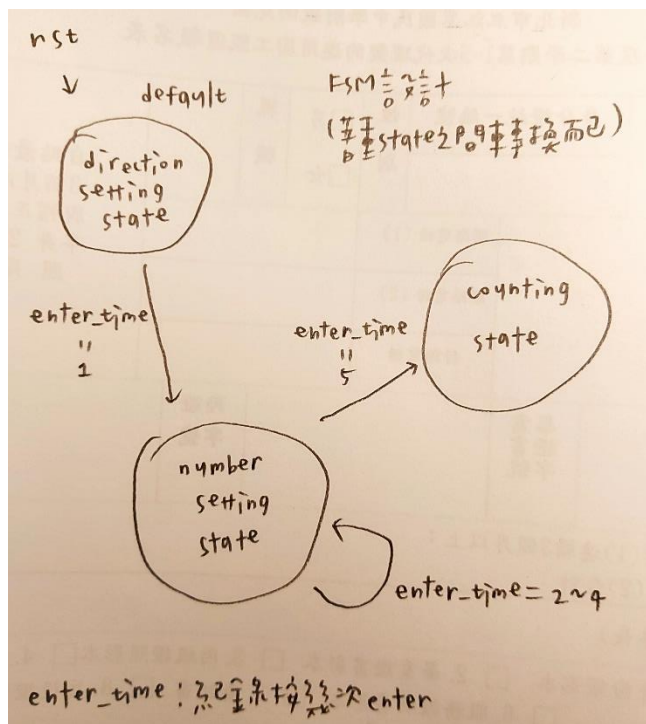 rst
default
FSM設計
(單單state之間轉換而已)
direction
setting
state
enter_time
"
1
enter_time
"
5
counting
state
number
setting
state
enter_time = 2~4
enter_time : 記錄按幾次enter